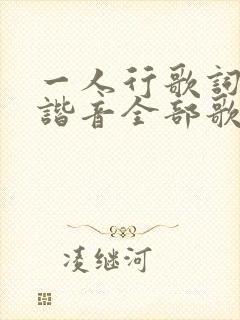 一人行歌詞
諧音全部歌
凌继河